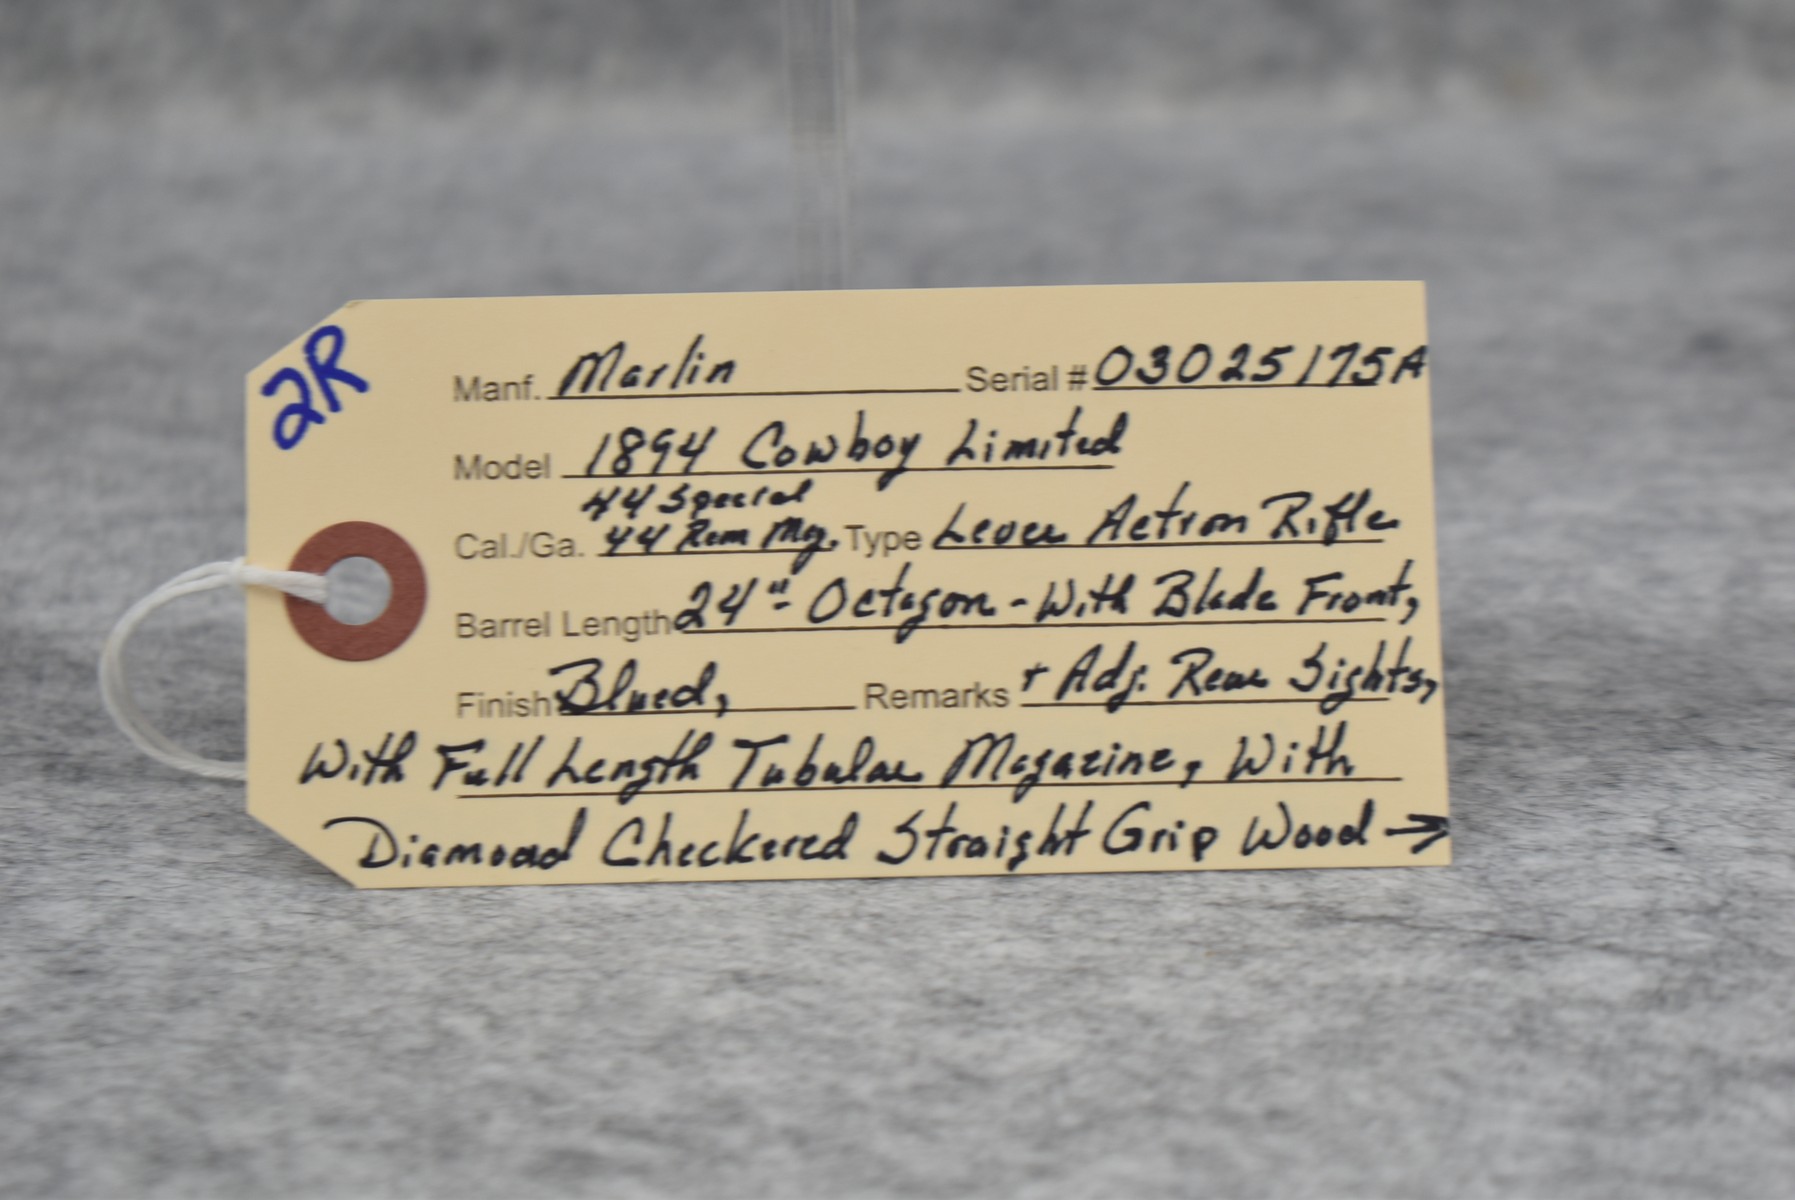 2R
Manf. Marlin Serial # 03025175A
Model 1894 Cowboy Limited
44 Special
Cal./Ga. 44 Rem Mg. Type Lever Action Rifle
Barrel Length 24"- Octagon - With Blade Front,
Finish Blued, Remarks + Adj. Rear Sights,
With Full Length Tubular Magazine, With
Diamond Checkered Straight Grip Wood →